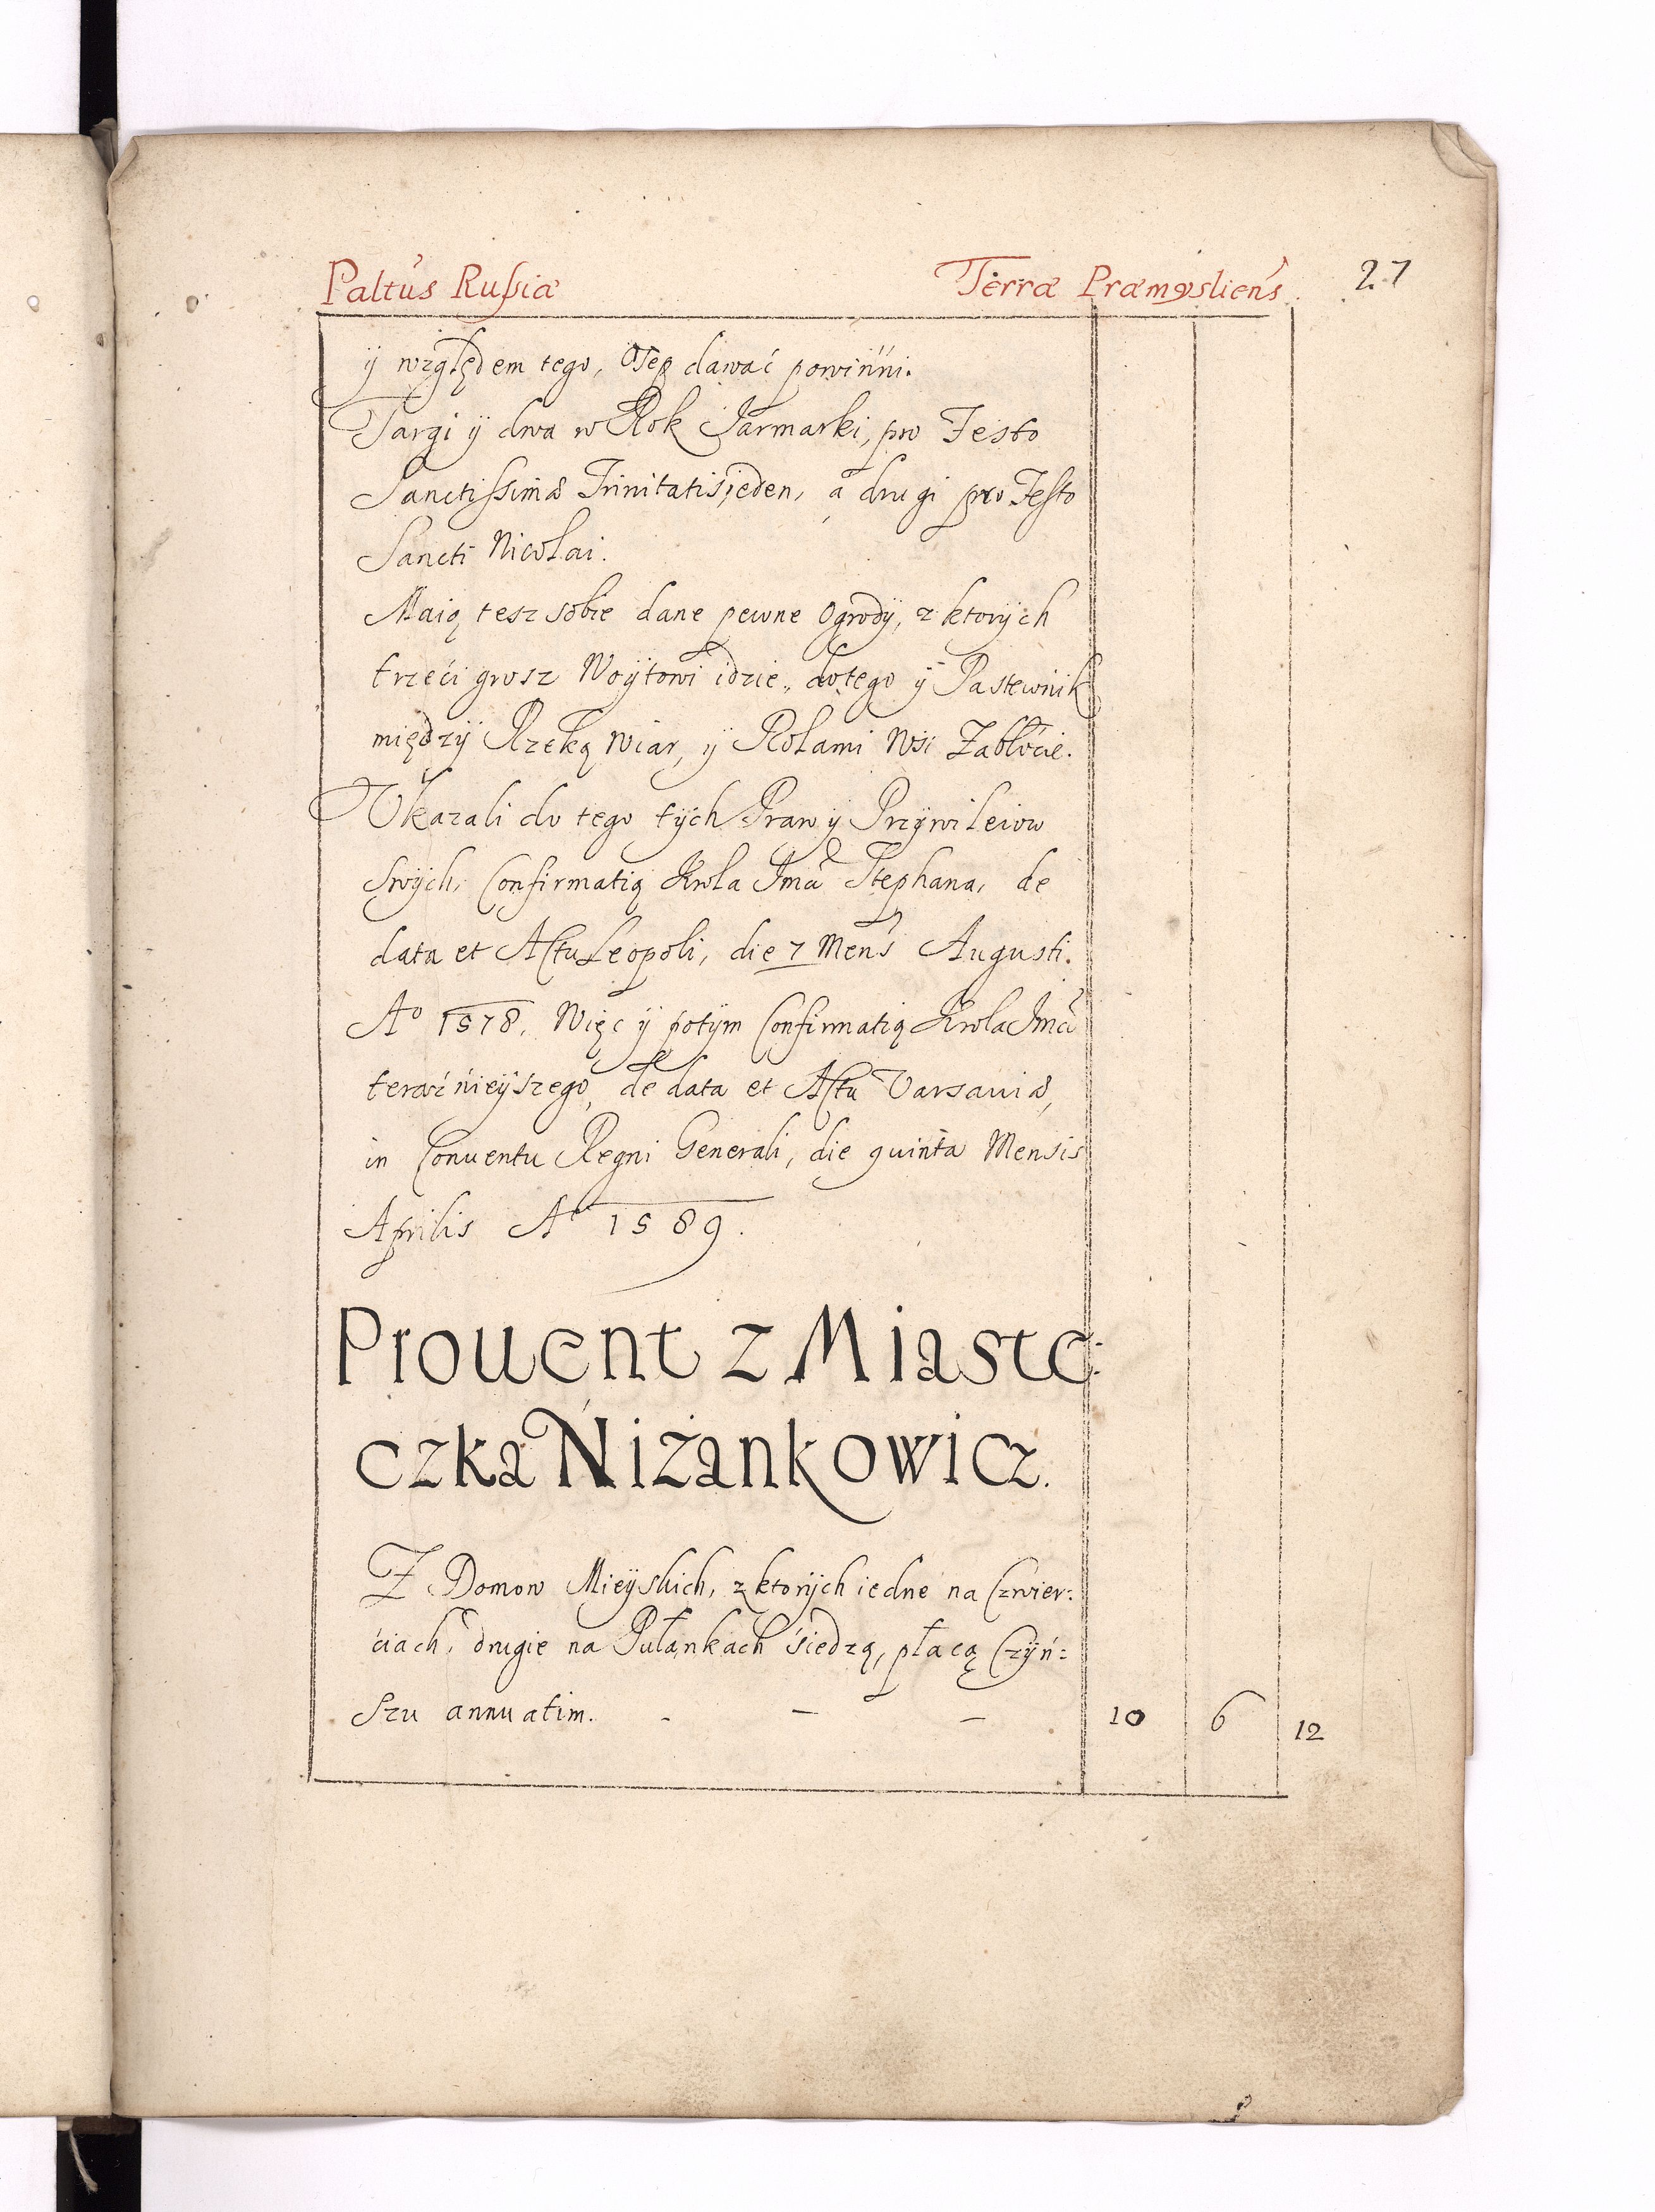 Paltûs Rusſiæ Terræ Præmysliens. 27
ÿ względem tego, Osep dawać powinni.
Targi ÿ dwa w Rok Jarmarki, pro Festo
Sanctiſsimæ Trinitatis ieden, a drugi pro Feſto
Sancti Nicolai.
Maią tesz sobie dane pewne Ogrody, z ktorÿch
trzeći grosz Woÿtowi idzie, do tego ÿ Pastewnik
międzÿ Rzeką Wiar, ÿ Rolami Wsi Zabłocie.
Vkazali do tego tÿch Praw ÿ Przÿwileiow
Swÿch, Confirmatią Krola Jmći Stephana, de
data et Actu Leopoli, die 7 Mens Augusti.
Aº 1578. Więc ÿ potÿm Confirmatią Krola Jmći
teraźnieÿszego, de data et Actu Varsaviæ,
in Conuentu Regni Generali, die quinta Mensis
Aprilis Aº 1589.
Prouent z Miaste:
czka Niżankowicz.
Z Domow Mieÿskich, z ktorÿch iedne na Czwier:
ciach, drugie na Pułankach siedzą, płacą Czÿń:
Szu annuatim. - - - 10 6 12